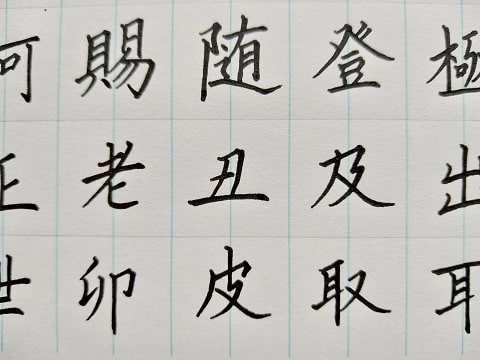 何 賜 随 登 極
正 老 丑 及 出
世 卯 皮 取 耳